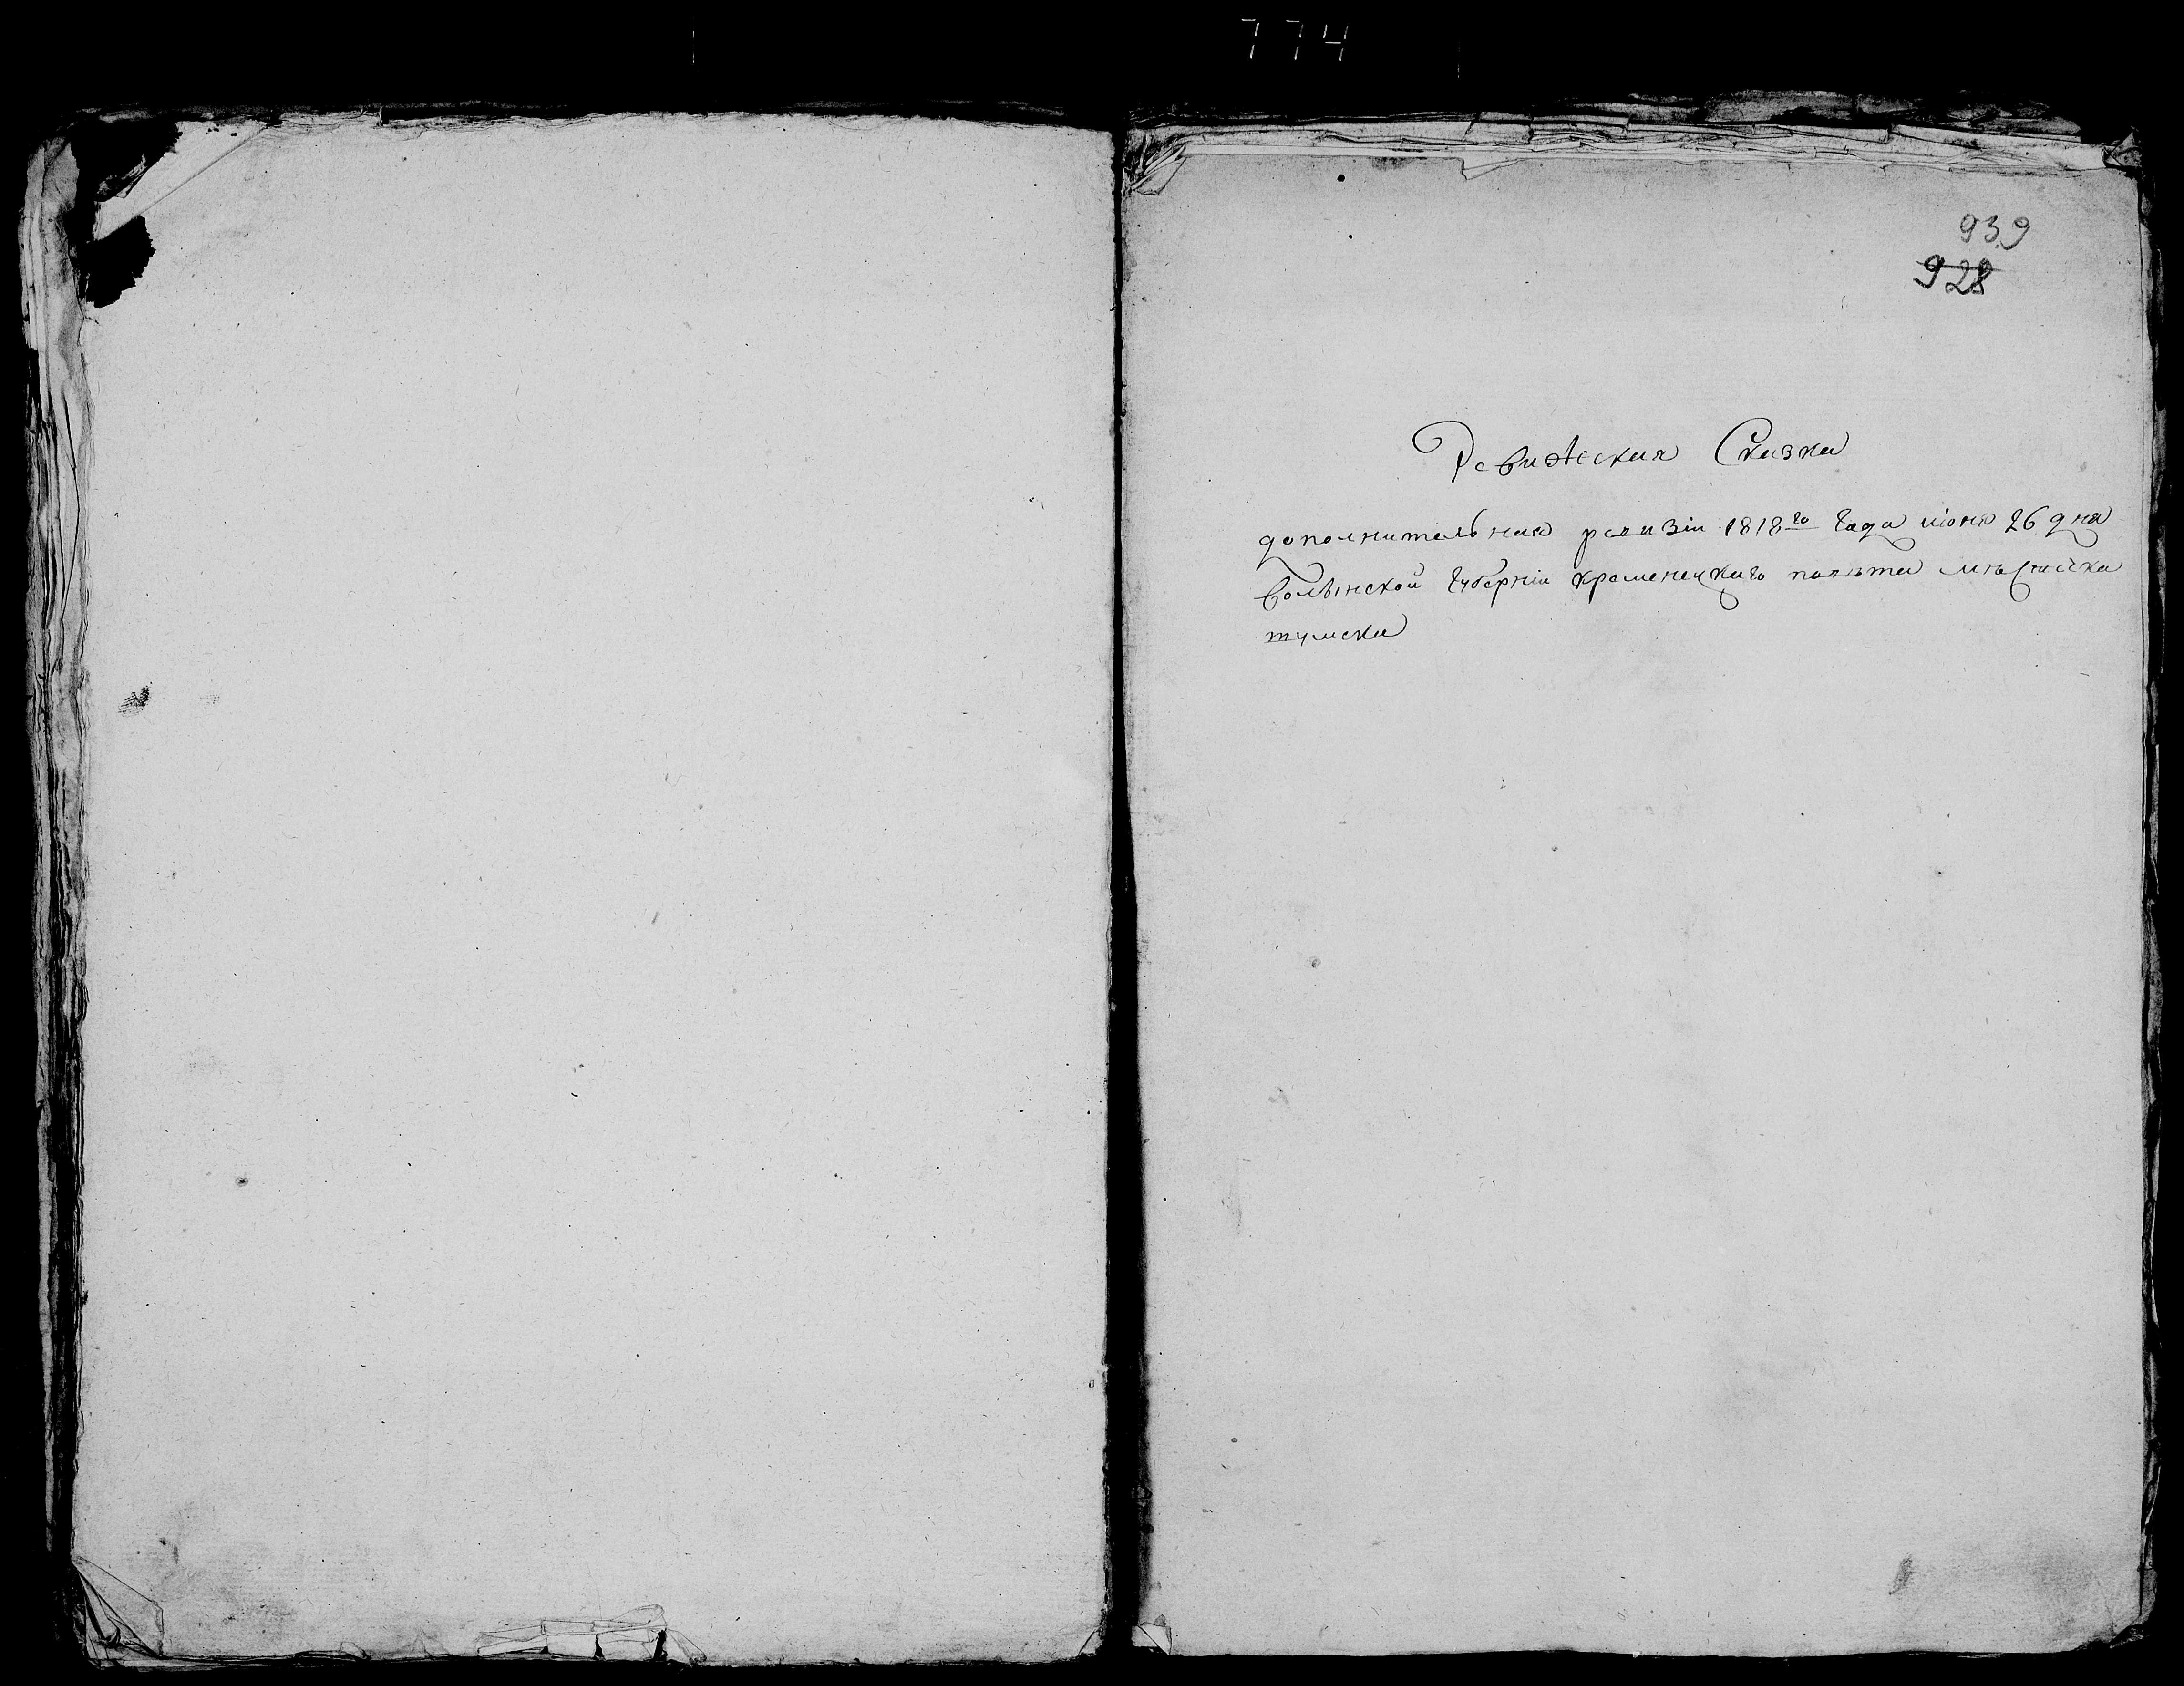 774
939
928
Ревизская Сказка
дополнительная ревизіи 1818го года июня 26 дня
волынской губерніи кременецкаго повѣта мѣстечка